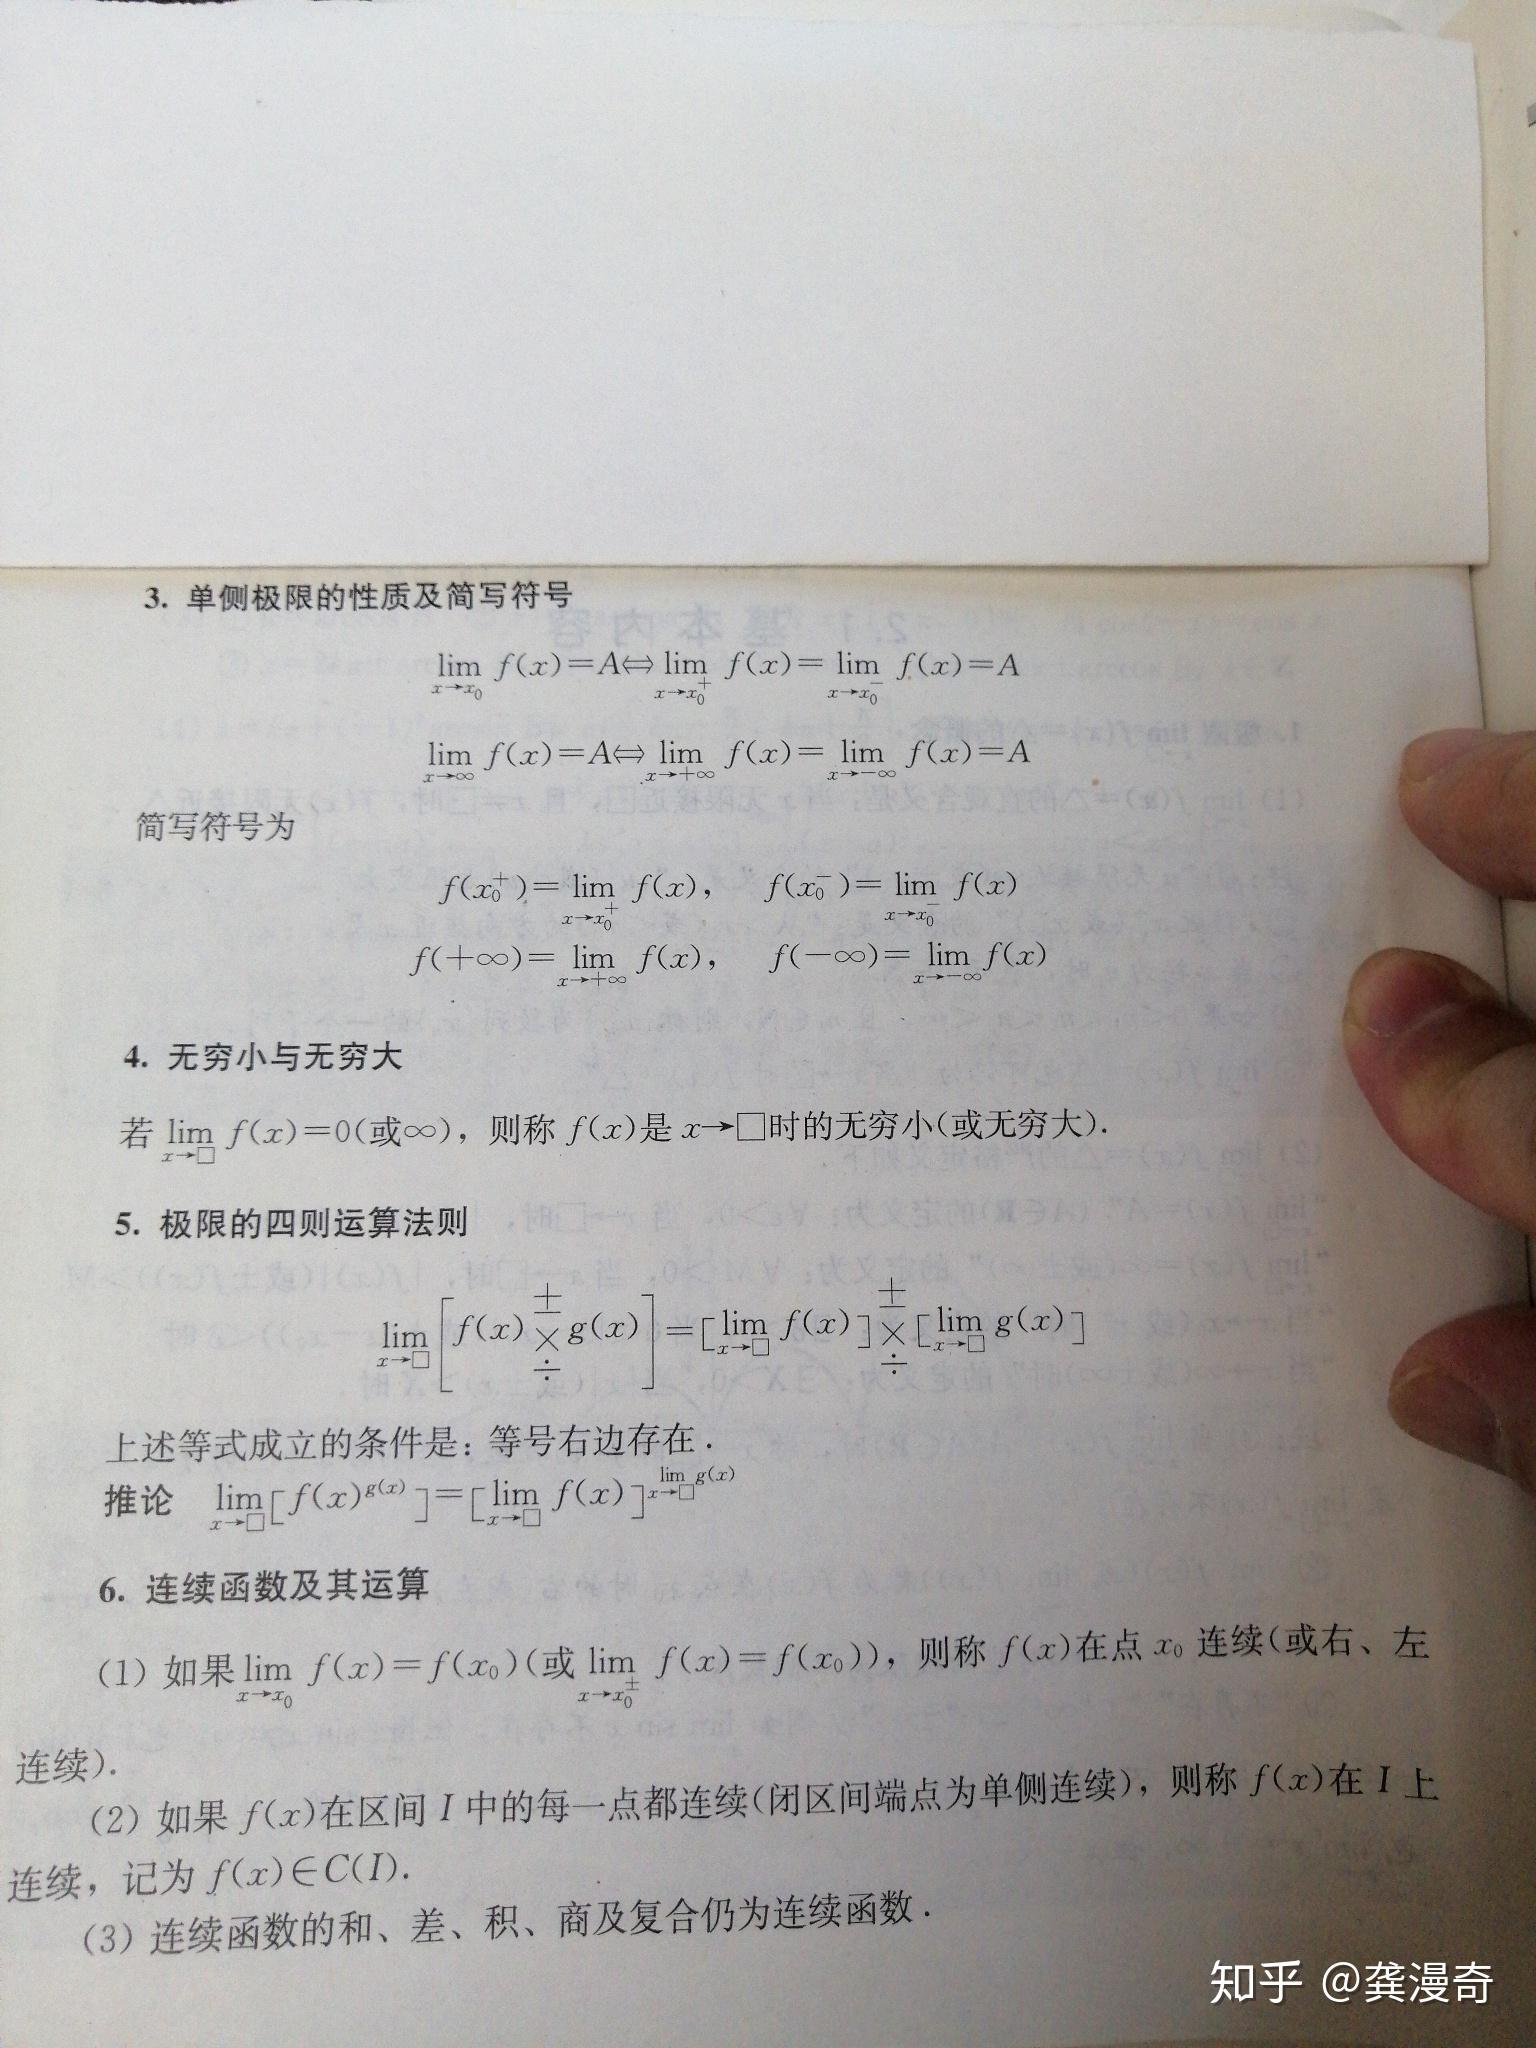 3. 单侧极限的性质及简写符号
lim_{x→x₀} f(x)=A⇔lim_{x→x₀⁺} f(x)=lim_{x→x₀⁻} f(x)=A
lim_{x→∞} f(x)=A⇔lim_{x→+∞} f(x)=lim_{x→-∞} f(x)=A
简写符号为
f(x₀⁺)=lim_{x→x₀⁺} f(x), f(x₀⁻)=lim_{x→x₀⁻} f(x)
f(+∞)=lim_{x→+∞} f(x), f(-∞)=lim_{x→-∞} f(x)
4. 无穷小与无穷大
若 lim_{x→□} f(x)=0(或∞), 则称 f(x)是 x→□时的无穷小(或无穷大).
5. 极限的四则运算法则
lim_{x→□}[f(x) ± × ÷ g(x)]=[lim_{x→□} f(x)] ± × ÷ [lim_{x→□} g(x)]
上述等式成立的条件是: 等号右边存在.
推论 lim_{x→□}[f(x)^{g(x)}]=[lim_{x→□} f(x)]^{lim_{x→□} g(x)}
6. 连续函数及其运算
(1) 如果lim_{x→x₀} f(x)=f(x₀)(或lim_{x→x₀^±} f(x)=f(x₀)), 则称 f(x)在点 x₀ 连续(或右、左
连续).
(2) 如果 f(x)在区间 I 中的每一点都连续(闭区间端点为单侧连续), 则称 f(x)在 I 上
连续, 记为 f(x)∈C(I).
(3) 连续函数的和、差、积、商及复合仍为连续函数.
知乎 @龚漫奇